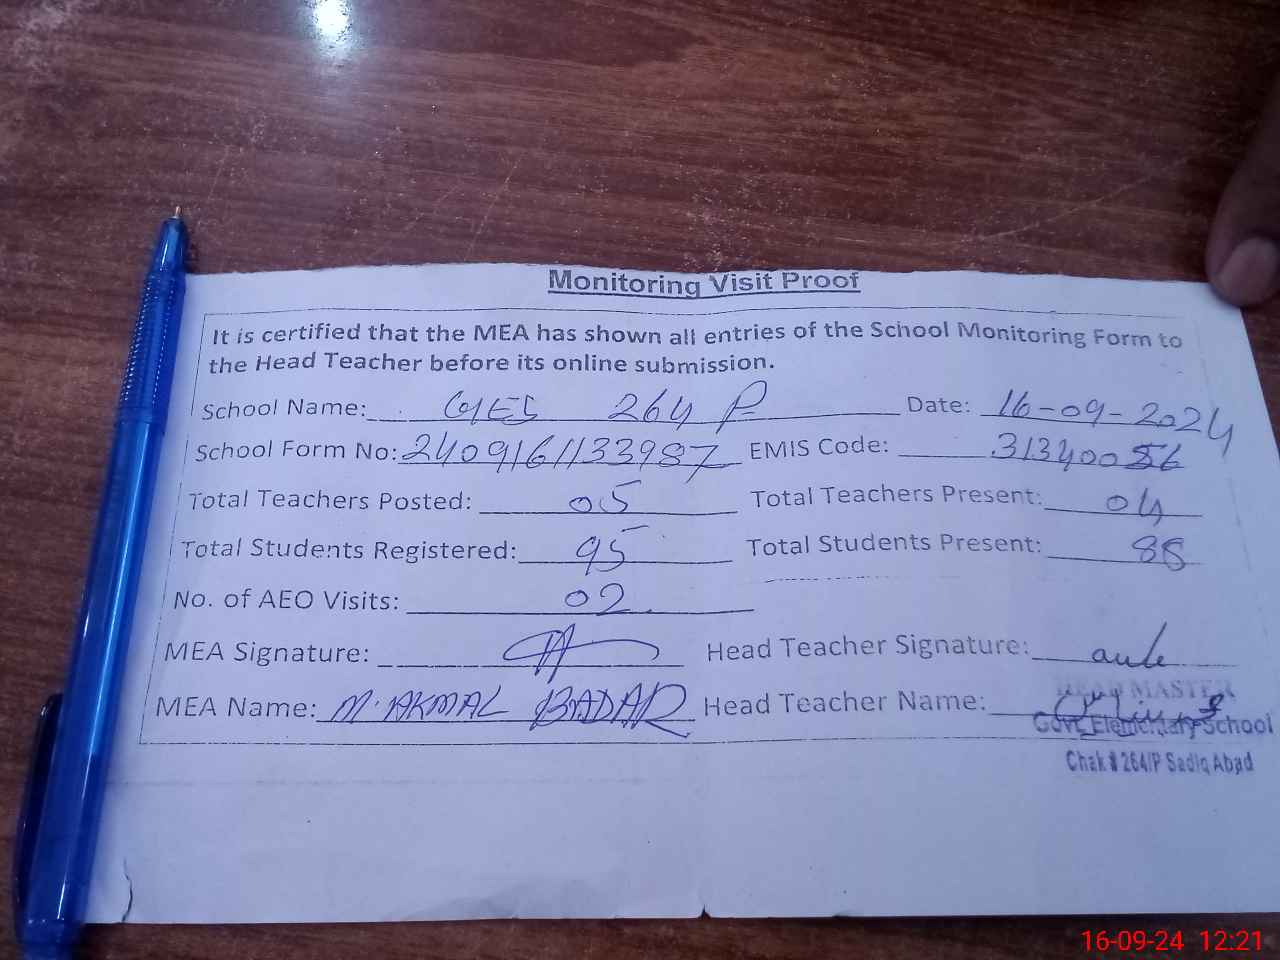 Monitoring Visit Proof
It is certified that the MEA has shown all entries of the School Monitoring Form to
the Head Teacher before its online submission.
School Name: GES 264 P Date: 16-09-2024
School Form No: 2409161133987 EMIS Code: 31340056
Total Teachers Posted: 05 Total Teachers Present: 04
Total Students Registered: 95 Total Students Present: 88
No. of AEO Visits: 02
MEA Signature: Head Teacher Signature:
MEA Name: M. AKMAL BADAR Head Teacher Name:
HEAD MASTER
Govt. Elementary School
Chak # 264/P Sadiq Abad
16-09-24 12:21